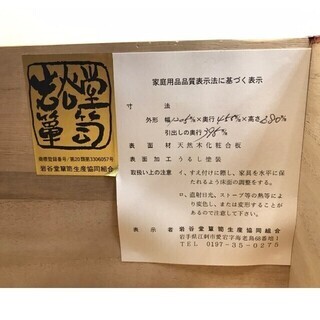 岩谷堂箪笥
商標登録番号/第20類第3306057号
岩谷堂箪笥生産協同組合
家庭用品品質表示法に基づく表示
寸法
外形 幅 ％×奥行450％×高さ ％
引出しの奥行395％
表面材 天然木化粧合板
表面加工 うるし塗装
取扱い上の注意 イ、すえ付けに際し、家具を水平に保
たれるよう床面の調整をする。
ロ、直射日光、ストーブ等の熱等により
退色し、または変形することが
あるので注意して下さい。
表示者 岩谷堂箪笥生産協同組合
岩手県江刺市愛宕字海老島68番地1
TEL 0197-35-0275